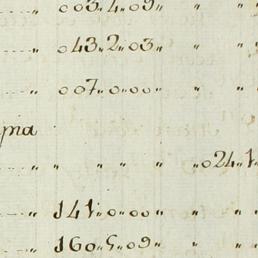 „ 003„4„09„ „ „
„ 043„2„03„ „ „
„ 007„0„00„ „ „
pia
„ „ „ „ „024„1„
„ 141„0„00„ „ „
„ 160„5„09„ „ „